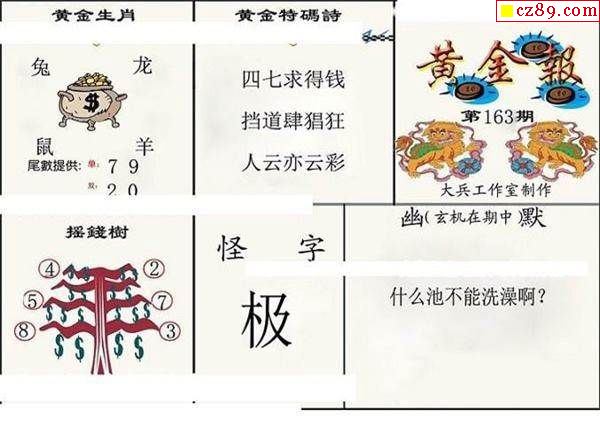 cz89.com
黄金生肖
兔 龙
$
鼠 羊
尾數提供: 单: 7 9
双: 2 0
黄金特碼詩
四七求得钱
挡道肆猖狂
人云亦云彩
黄金報
第163期
大兵工作室制作
摇錢樹
④ ②
⑤ ⑦
⑧ ③
怪 字
极
幽(玄机在期中)默
什么池不能洗澡啊？